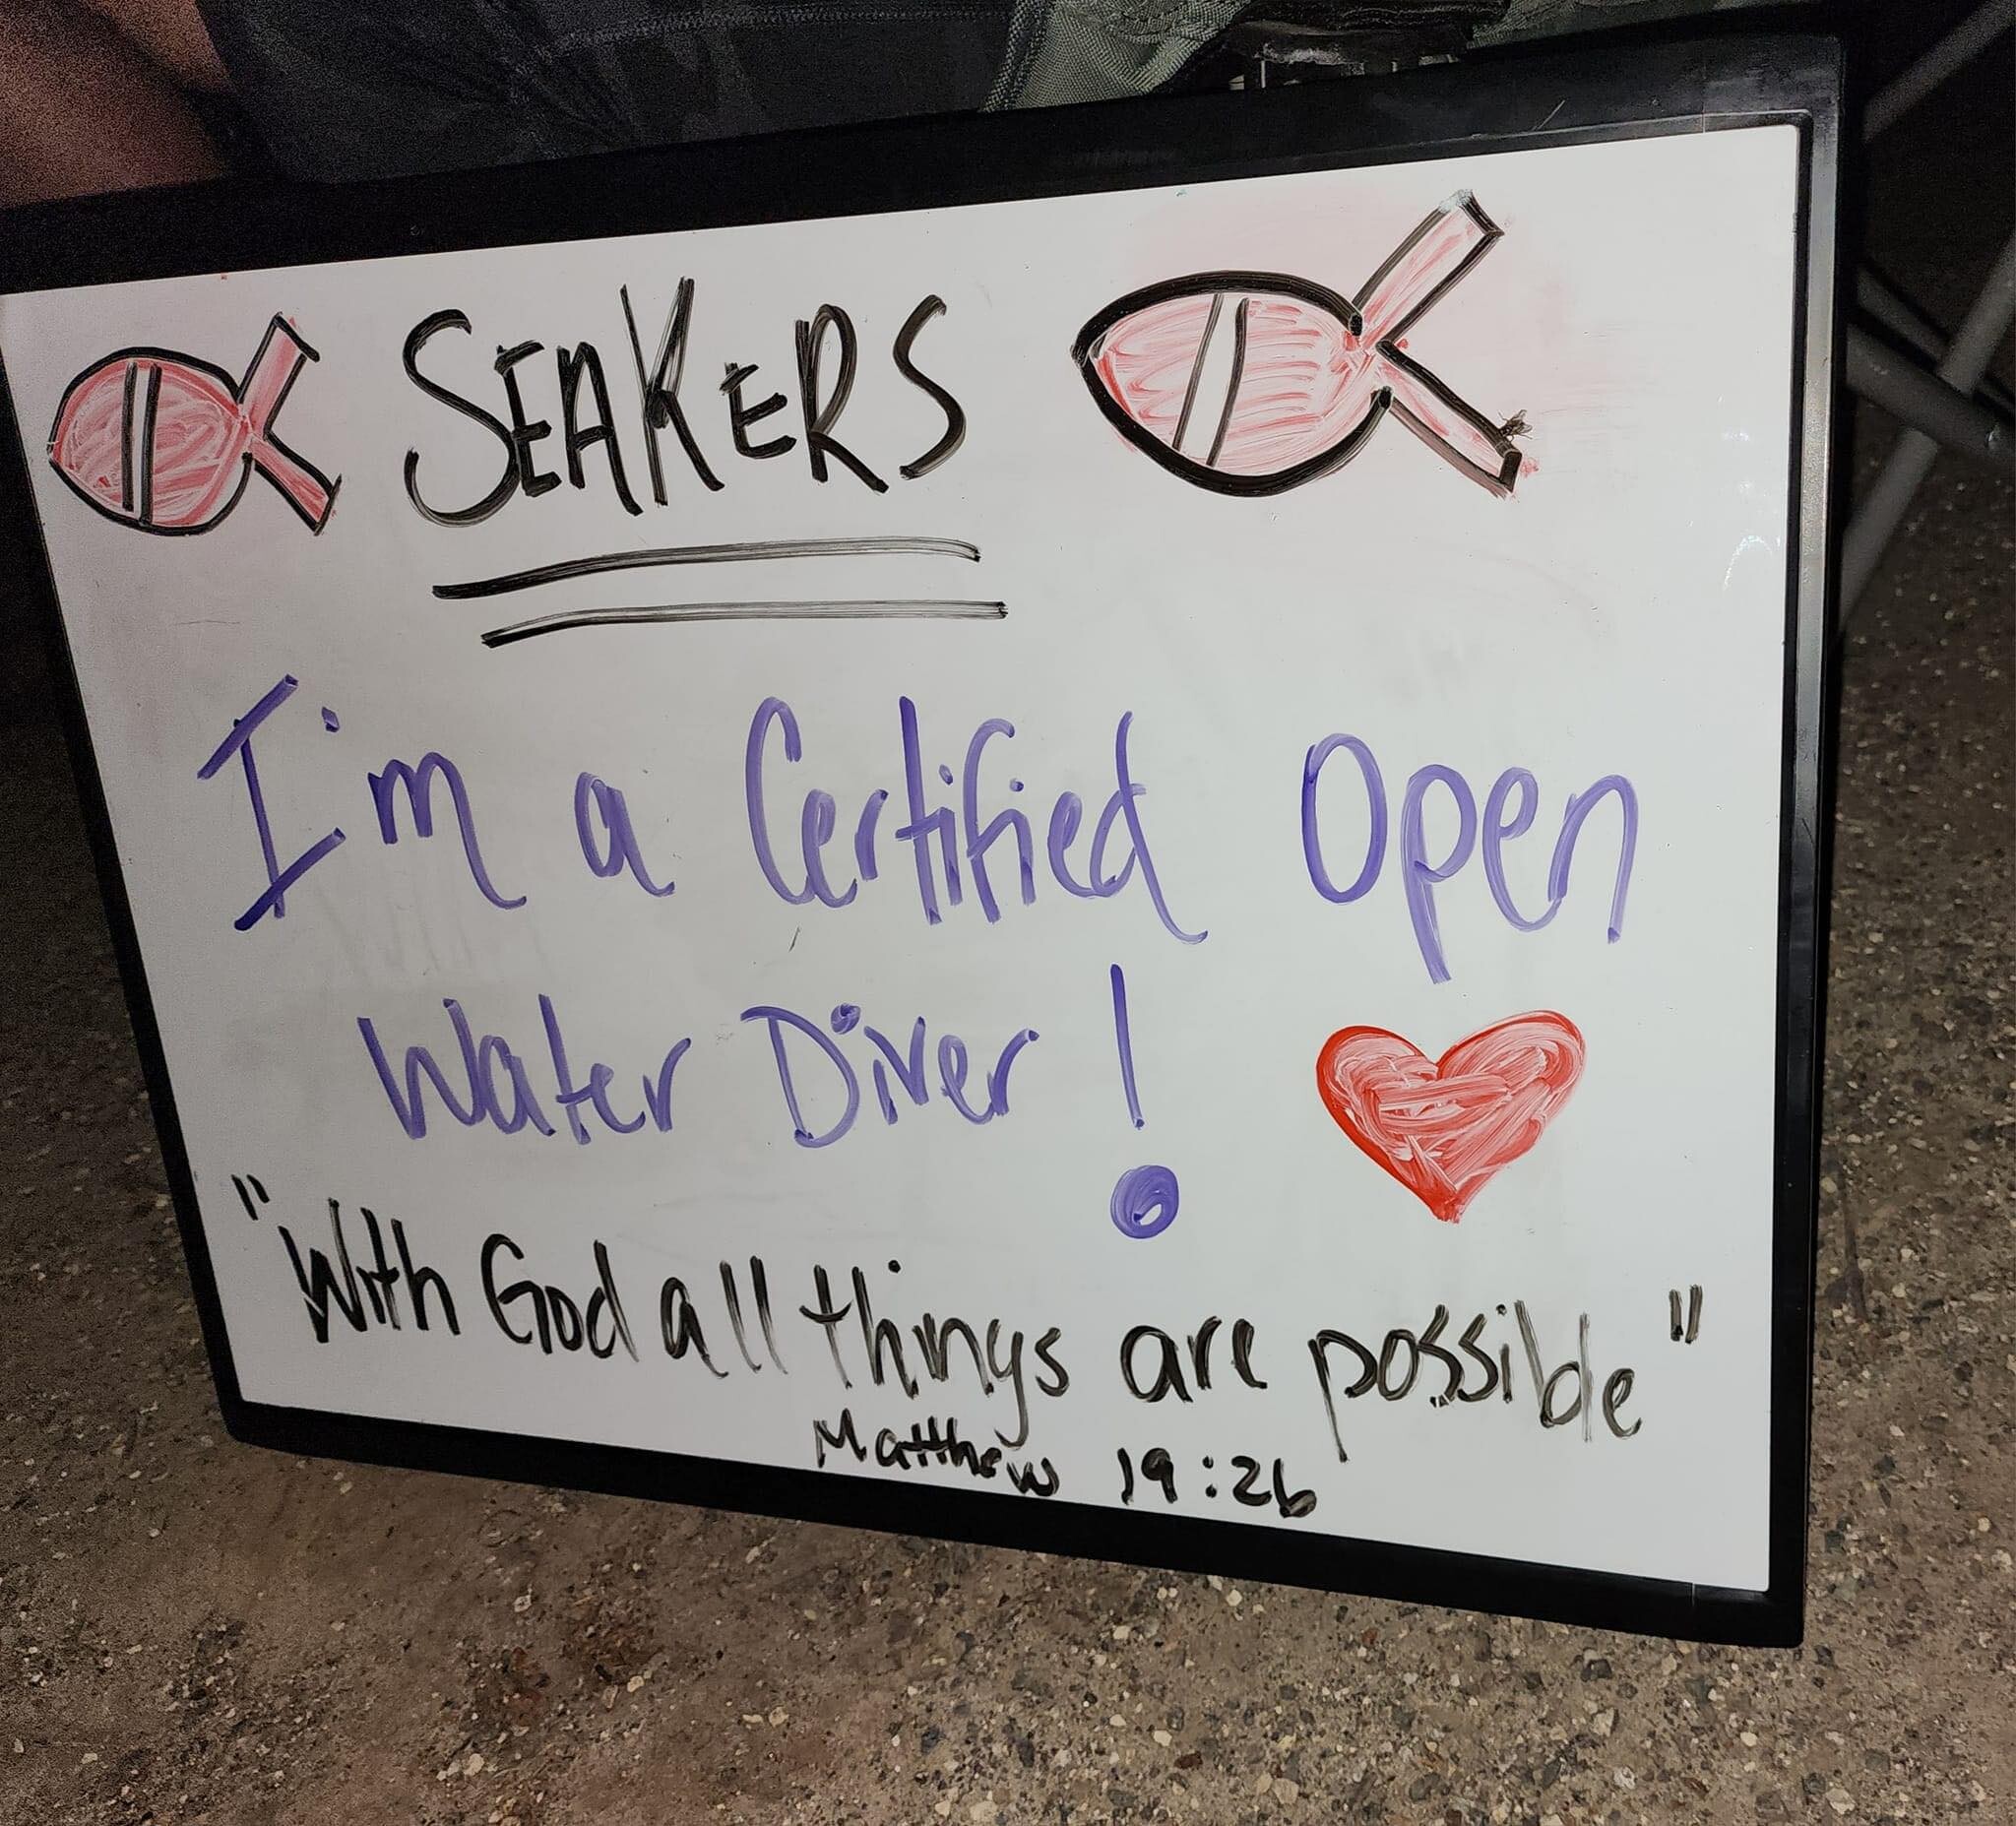 SEAKERS
I'm a Certified Open
Water Diver!
"With God all things are possible"
Matthew 19:26